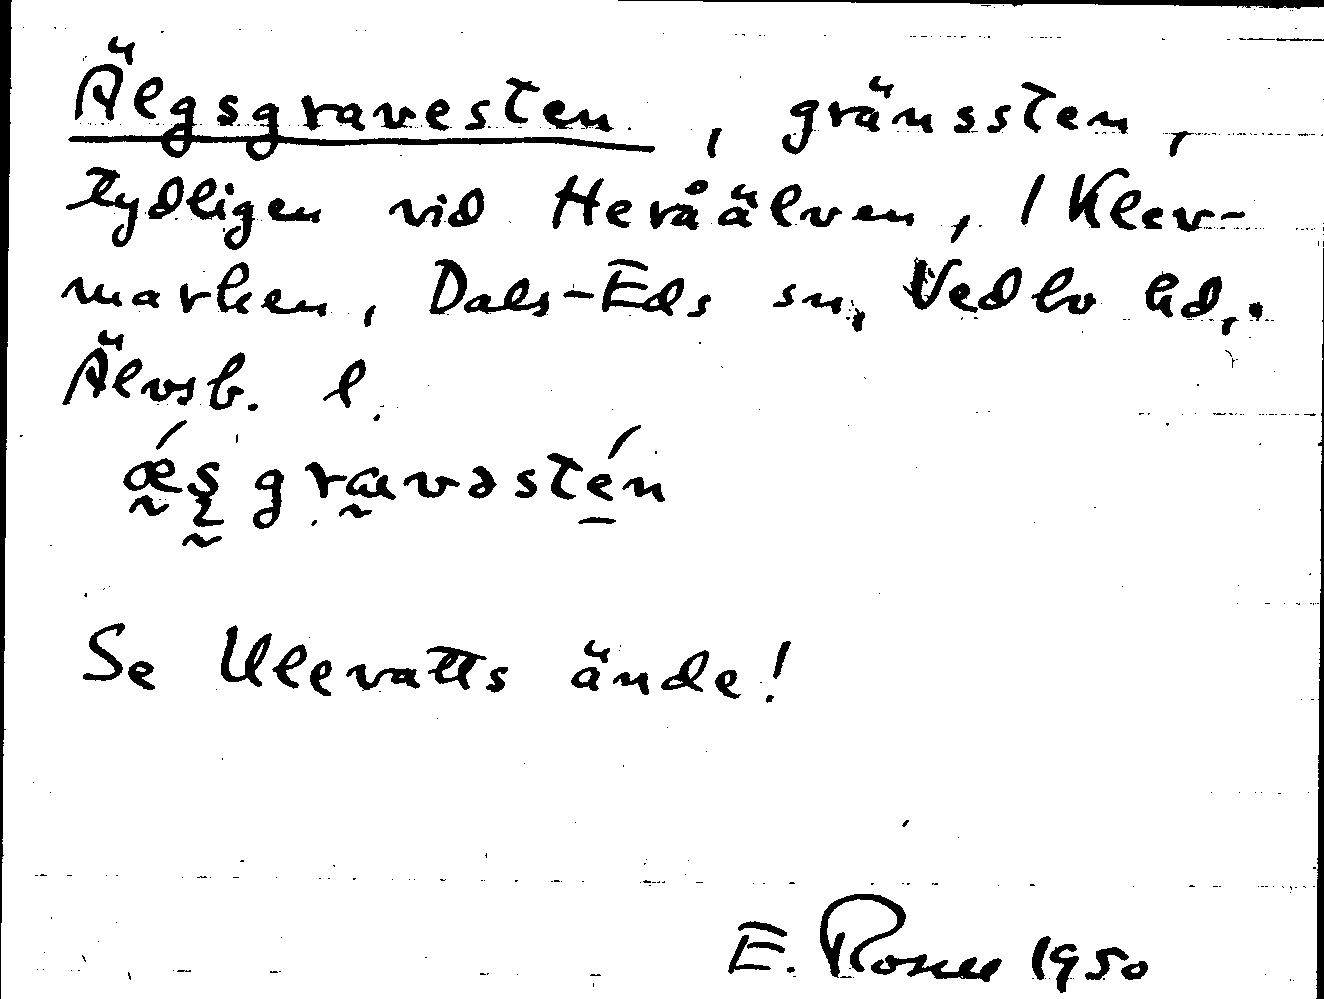 Älgsgravesten, gränssten,
tydligen vid Heråälven, / Klev-
marken, Dals-Eds sn, Vedbo hd,.
Älvsb. l.
ǽs gravəstén
Se Ulevatts ände!
E. Rosell 1950